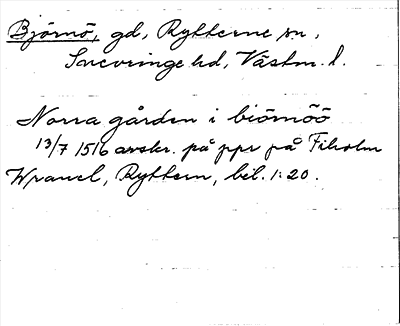 Björnö, gd, Rytterne sn,
Snevringe hd, Västm. l.
Norra gården i biörnöö
13/7 1516 avskr. på ppr på Fiholm
Wrancl, Ryttern, bil. 1:20.